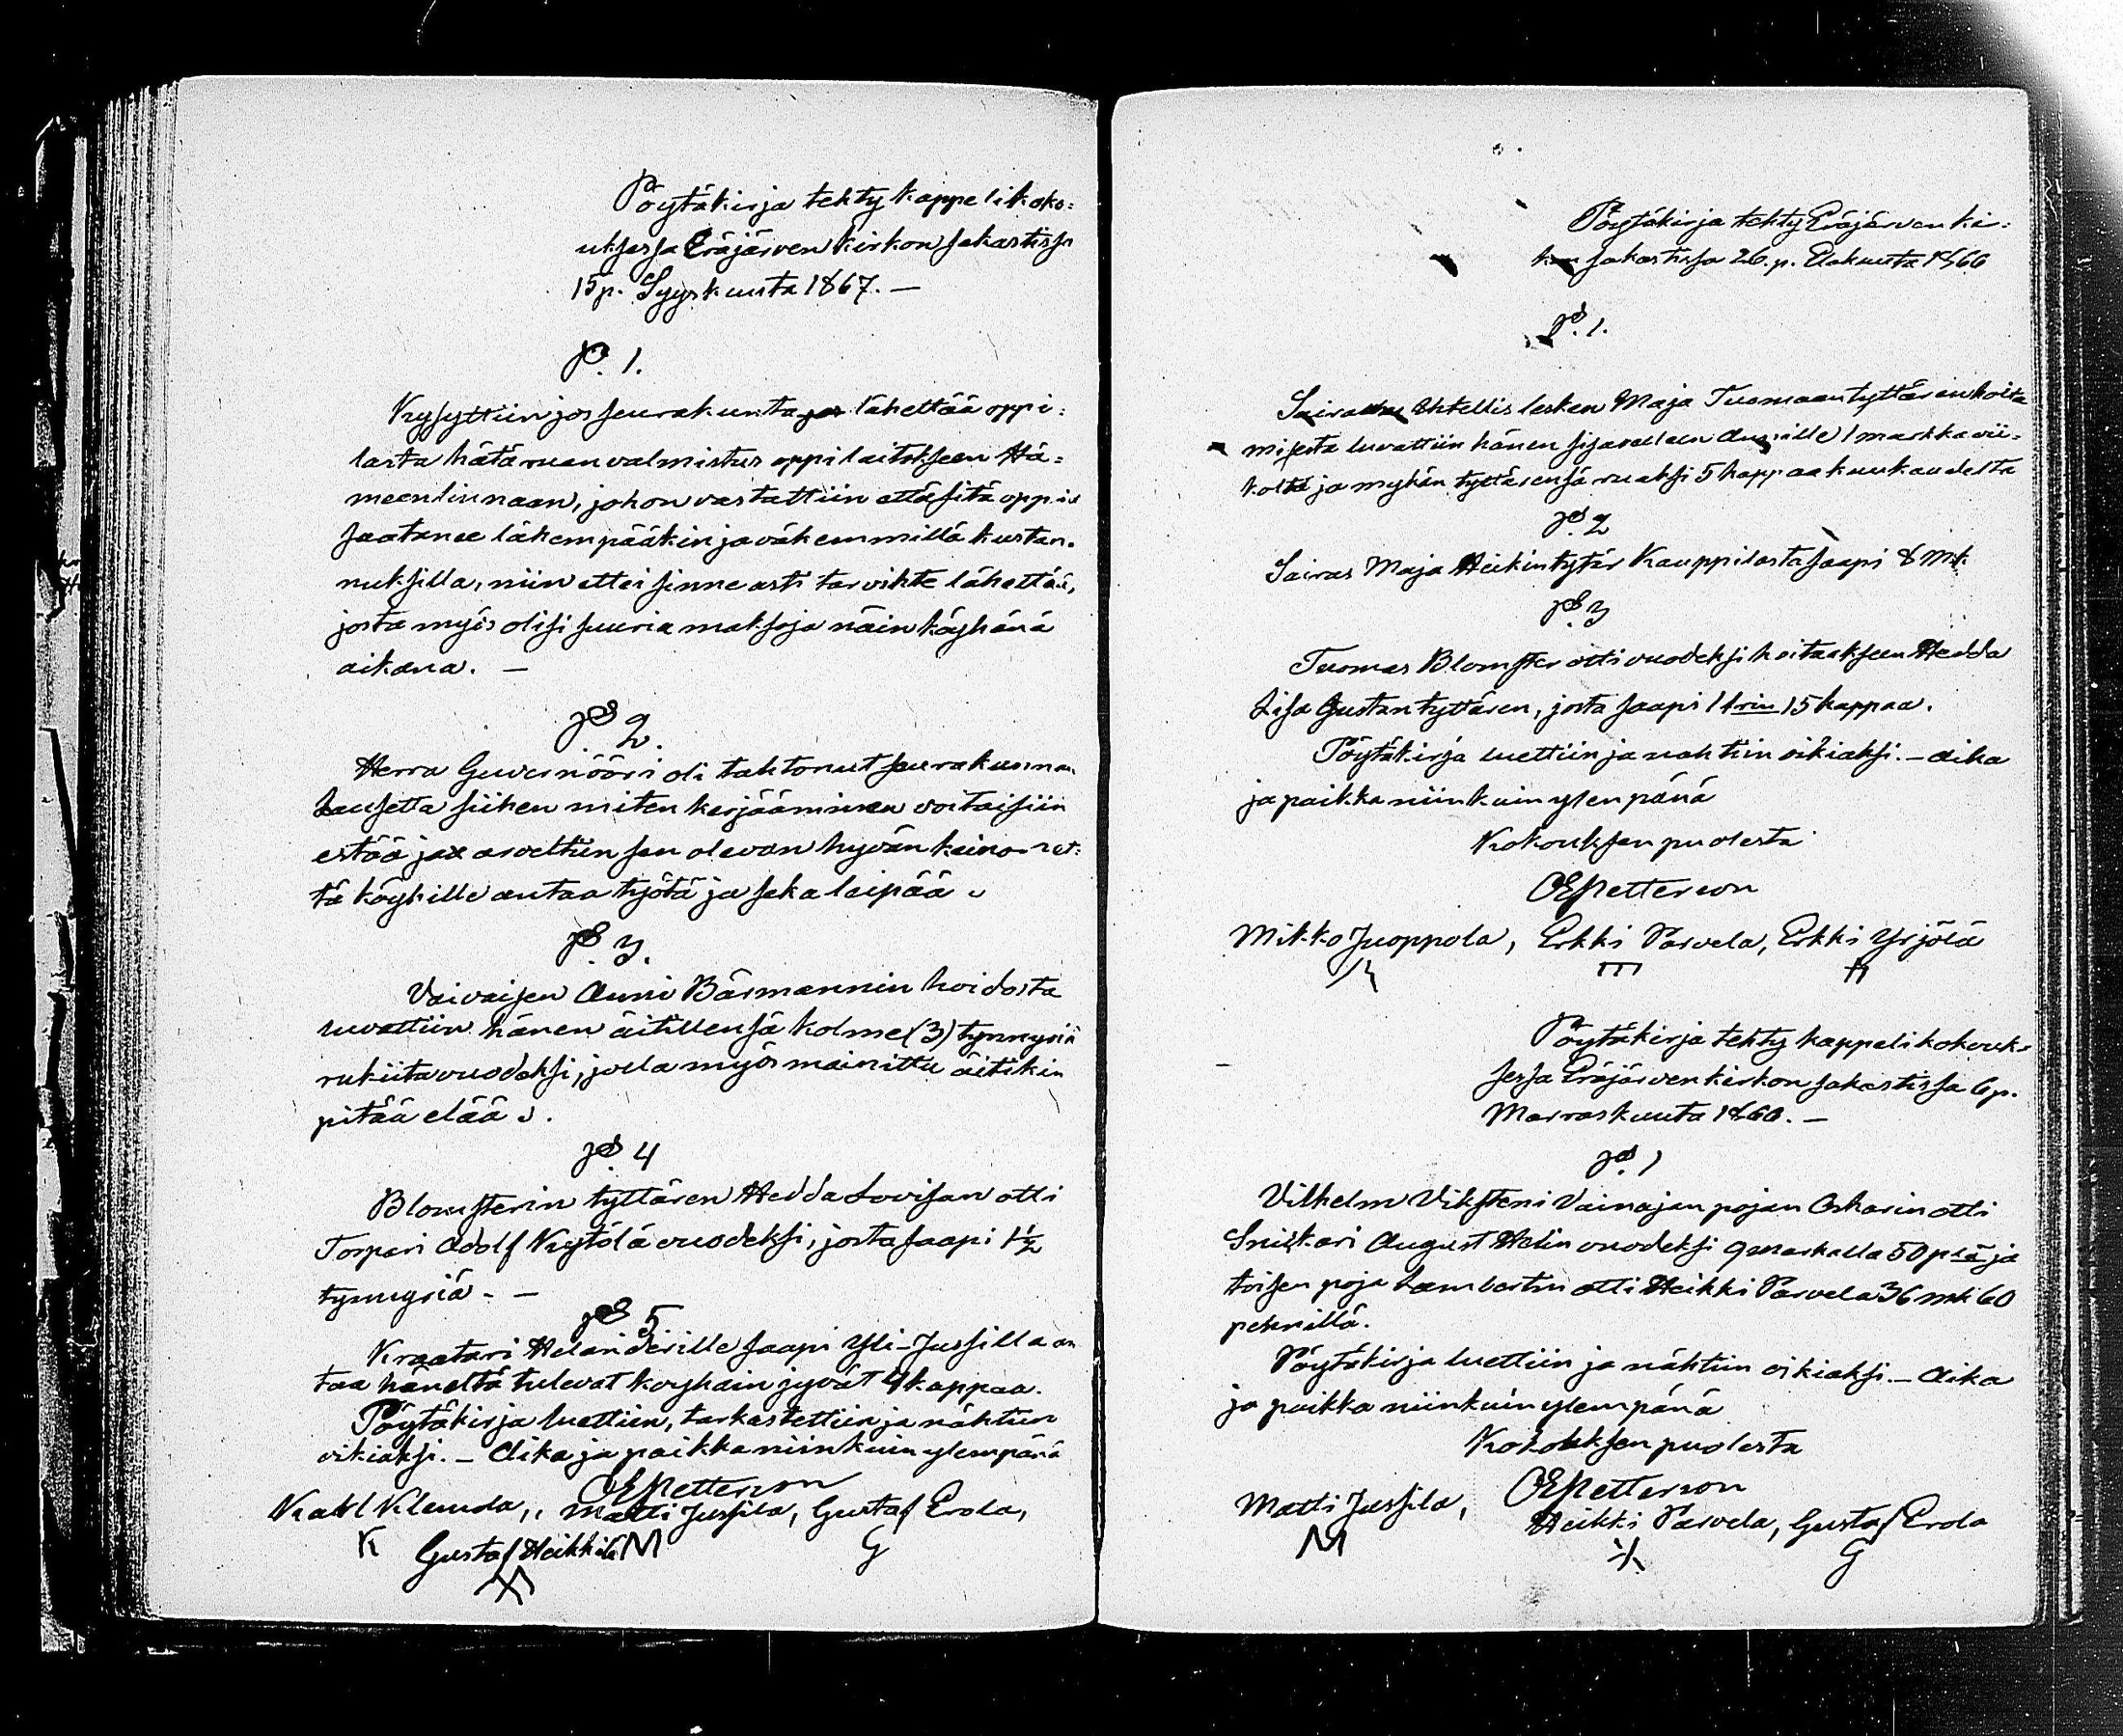 Pöytäkirja tehty kappelikoko=
uksessa Eräjärven kirkon sakastissa
15 p. Syyskuuta 1867. —
§. 1.
Kysyttiin jos seurakunta lähettää oppi=
lasta hätäruan valmistus oppilaitokseen Hä=
meenlinnaan, johon vastattiin että sitä oppia
saatanee lähempääkin ja vähemmillä kustan=
nuksilla, niin ettei sinne asti tarvihte lähettää,
josta myös olisi suuria maksoja näin köyhänä
aikana. —
§ 2.
Herra Guvernööri oli tahtonut seurakunnan
lausetta siihen miten kerjääminen voitaisiin
estää ja arveltiin sen olevan hyvän keinon et=
tä köyhille antaa työtä ja seka leipää.
§ 3.
Vaivaisen Anni Bärmannin hoidosta
luvattiin hänen äitillensä kolme (3) tynnyriä
rukiita vuodeksi, jolla myös mainittu äitikin
pitää elää.
§ 4
Blomsterin tyttären Hedda Lovisan otti
Torpari Adolf Kytölä vuodeksi, josta saapi 1½
tynnyriä. —
§ 5
Kraatari Helanderille saapi Yli-Jussilla an
taa häneltä tulevat köyhäin jyvät 4 kappaa.
Pöytäkirja luettiin, tarkastettiin ja nähtiin
oikiaksi. — Aika ja paikka niinkuin ylempänä
OEPetterson
Kalle Klemola, Matti Jussila, Gustaf Erola,
K M G
Gustaf Heikkilä
Pöytäkirja tehty Eräjärven kir=
kon sakastissa 26. p. Elokuuta 1866
§. 1.
Sairaan lesken Maja Tuomaantyttären hoita
misesta luvattiin hänen sisarelleen 1 markka vii=
kolta ja mykän tyttärensä ruaksi 5 kappaa kuukaudelta
§ 2
Sairas Maja Heikintytär Kauppilasta saapi 8 mk.
§ 3
Tuomas Blomster otti vuodeksi hoitaakseen Hedda
Lisa Gustantyttären, josta saapi 1 t:rin 15 kappaa.
Pöytäkirja luettiin ja nähtiin oikiaksi. — Aika
ja paikka niinkuin ylenpänä
Kokouksen puolesta
OEPetterson
Mikko Juoppola, Erkki Parvela, Erkki Yrjölä
Pöytäkirja tehty kappelikokouk=
sessa Eräjärven kirkon sakastissa 6 p.
Marraskuuta 1860. —
§ 1
Vilhelm Viksteni Vainajan pojan Oskarin otti
Snikari August Helin vuodeksi 9 markalla 50 p:iä ja
toisen poja Lambertin otti Heikki Parvela 36 mk 60
pennillä.
Pöytäkirja luettiin ja nähtiin oikiaksi. — Aika
ja paikka niinkuin ylempänä
Kokouksen puolesta
OEPetterson
Matti Jussila, Heikki Parvela, Gustaf Erola
M G